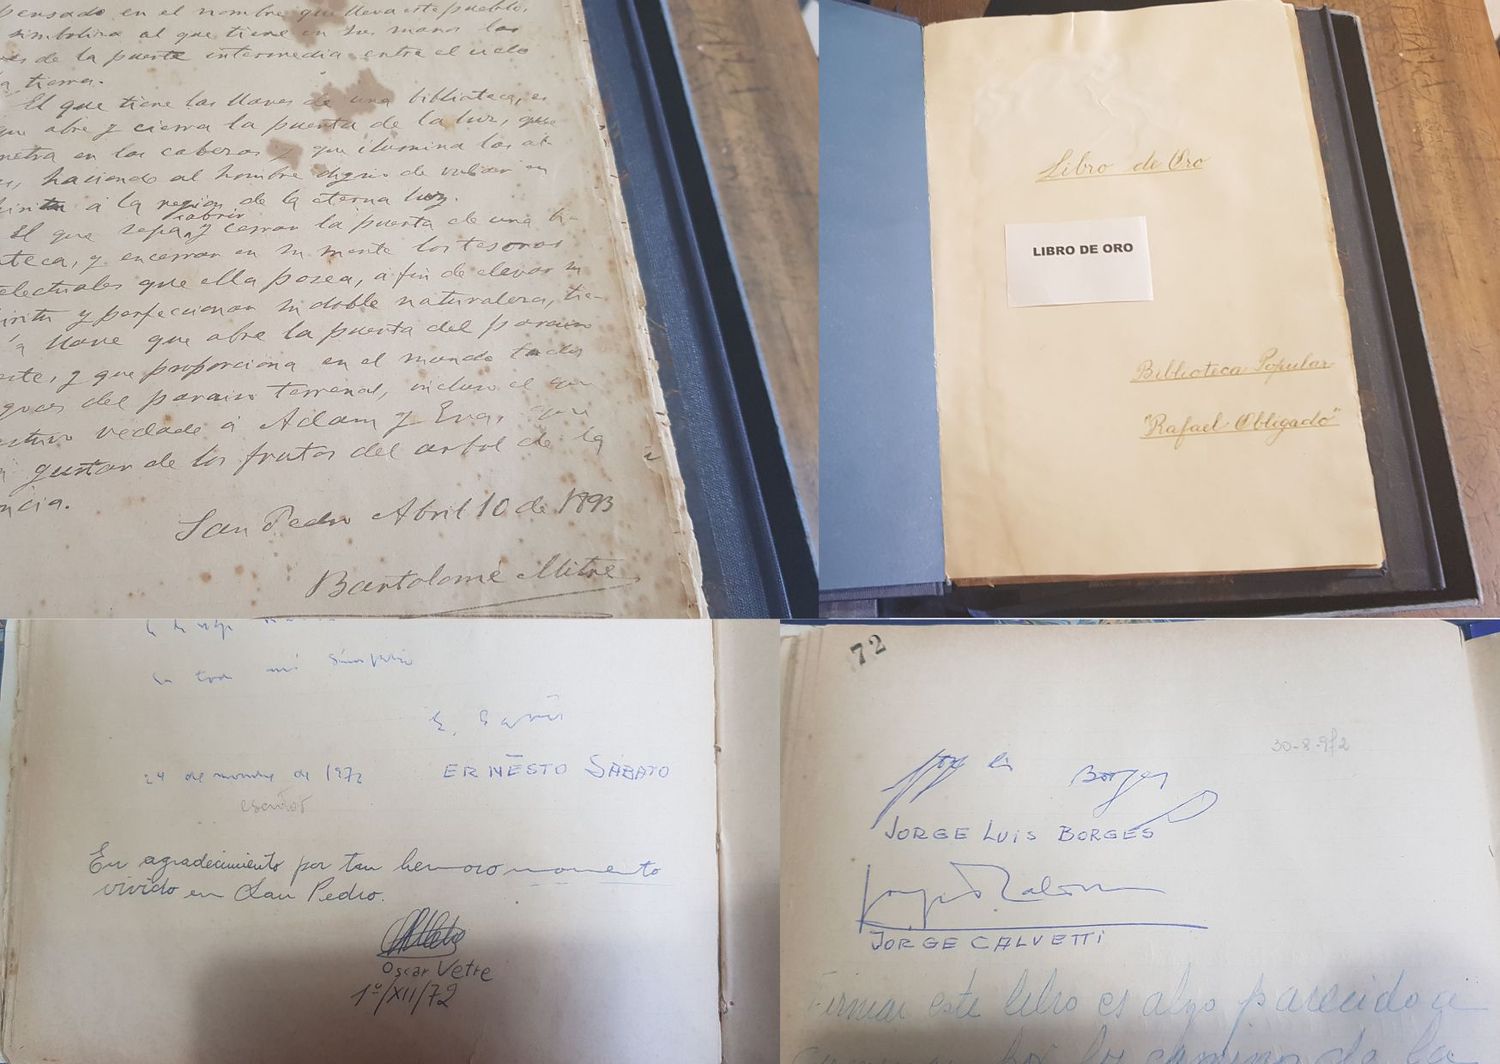 pensado en el nombre que lleva este pueblo,
simboliza al que tiene en sus manos las
de la puerta intermedia entre el cielo
tierra.
El que tiene las llaves de una biblioteca, es
que abre y cierra la puerta de la luz, que
en las cabezas y que ilumina las al-
haciendo al hombre digno de en
á la region de la eterna luz.
El que sepa abrir y cerrar la puerta de una bi-
teca, y encerrar en su mente los tesoros
electuales que ella posea, a fin de elevar su
y perfeccionar su doble naturaleza, tie-
llave que abre la puerta del paraiso
y que proporciona en el mundo todos
del paraiso terrenal, incluso el que
vedado á Adam y Eva, que
gustar de los frutos del arbol de la
ncia.
San Pedro Abril 10 de 1893
Bartolomé Mitre
Libro de Oro
LIBRO DE ORO
Biblioteca Popular
"Rafael Obligado"
mi simpatía
E. Sabato
24 de de 1972 ERNESTO SÁBATO
escritor
En agradecimiento por tan hermoso momento
vivido en San Pedro.
Oscar Vetre
1º/XII/72
72
30-8-972
Jorge Luis Borges
JORGE LUIS BORGES
JORGE CALVETTI
Firmar este libro es algo parecido a
por los caminos de la